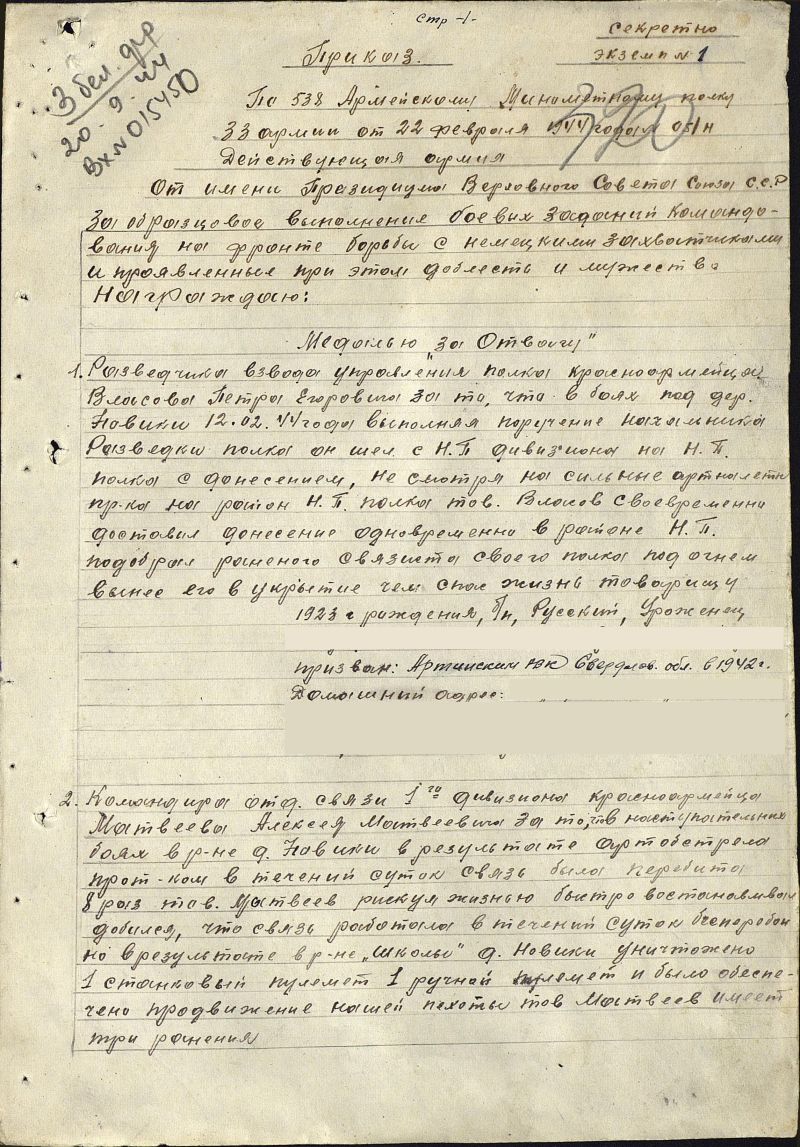 стр -1-
секретно
Приказ.
экземп N 1
3 бел. фр
20. 9. 44
Вх N 015450
По 538 Армейскому Минометному полку
33 армии от 22 февраля 1944 года N 01/н
Действующая армия
От имени Президиума Верховного Совета Союза С.С.Р
за образцовое выполнение боевых заданий командо-
вания на фронте борьбы с немецкими захватчиками
и проявленные при этом доблесть и мужество
Награждаю:
Медалью "за Отвагу"
1. Разведчика взвода управления полка красноармейца
Власова Петра Егоровича за то, что в боях под дер.
Новики 12.02.44 года выполняя поручение начальника
Разведки полка он шел с Н.П. дивизиона на Н.П.
полка с донесением, не смотря на сильные артналеты
пр-ка на район Н.П. полка тов. Власов своевременно
доставил донесение одновременно в районе Н.П.
подобрал раненого связиста своего полка под огнем
вынес его в укрытие чем спас жизнь товарищу
1923 г рождения, б/п, Русский, Уроженец
призван: Артинским РВК Свердлов. обл. в 1942 г.
Домашний адрес:
2. Командира отд. связи 1го дивизиона красноармейца
Матвеева Алексея Матвеевича за то, что в наступательных
боях в р-не д. Новики в результате артобстрела
прот-ком в течений суток связь была перебита
8 раз тов. Матвеев рискуя жизнью быстро востанавливал
добился, что связь работала в течений суток бесперебой
но в результате в р-не "школы" д. Новики уничтожено
1 станковый пулемет 1 ручной пулемет и было обеспе-
чено продвижение нашей пехоты тов Матвеев имеет
три ранения